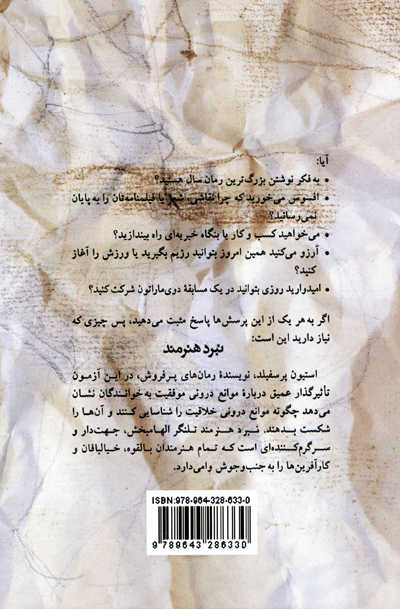 آیا:
• به فکر نوشتن بزرگ‌ترین رمان سال هستید؟
• افسوس می‌خورید که چرا نقاشی، شعر یا فیلمنامه‌تان را به پایان
نمی‌رسانید؟
• می‌خواهید کسب و کار یا بنگاه خیریه‌ای راه بیندازید؟
• آرزو می‌کنید همین امروز بتوانید رژیم بگیرید یا ورزش را آغاز
کنید؟
• امیدوارید روزی بتوانید در یک مسابقهٔ دوی ماراتون شرکت کنید؟
اگر به هر یک از این پرسش‌ها پاسخ مثبت می‌دهید، پس چیزی که
نیاز دارید این است:
نبرد هنرمند
استیون پرسفیلد، نویسندهٔ رمان‌های پرفروش، در این آزمون
تأثیرگذار عمیق دربارهٔ موانع درونی موفقیت به خوانندگان نشان
می‌دهد چگونه موانع درونی خلاقیت را شناسایی کنند و آن‌ها را
شکست بدهند. نبرد هنرمند تلنگر الهام‌بخش، جهت‌دار و
سرگرم‌کننده‌ای است که تمام هنرمندان بالقوه، خیالبافان و
کارآفرین‌ها را به جنب‌وجوش وامی‌دارد.
ISBN: 978-964-328-633-0
9 789643 286330